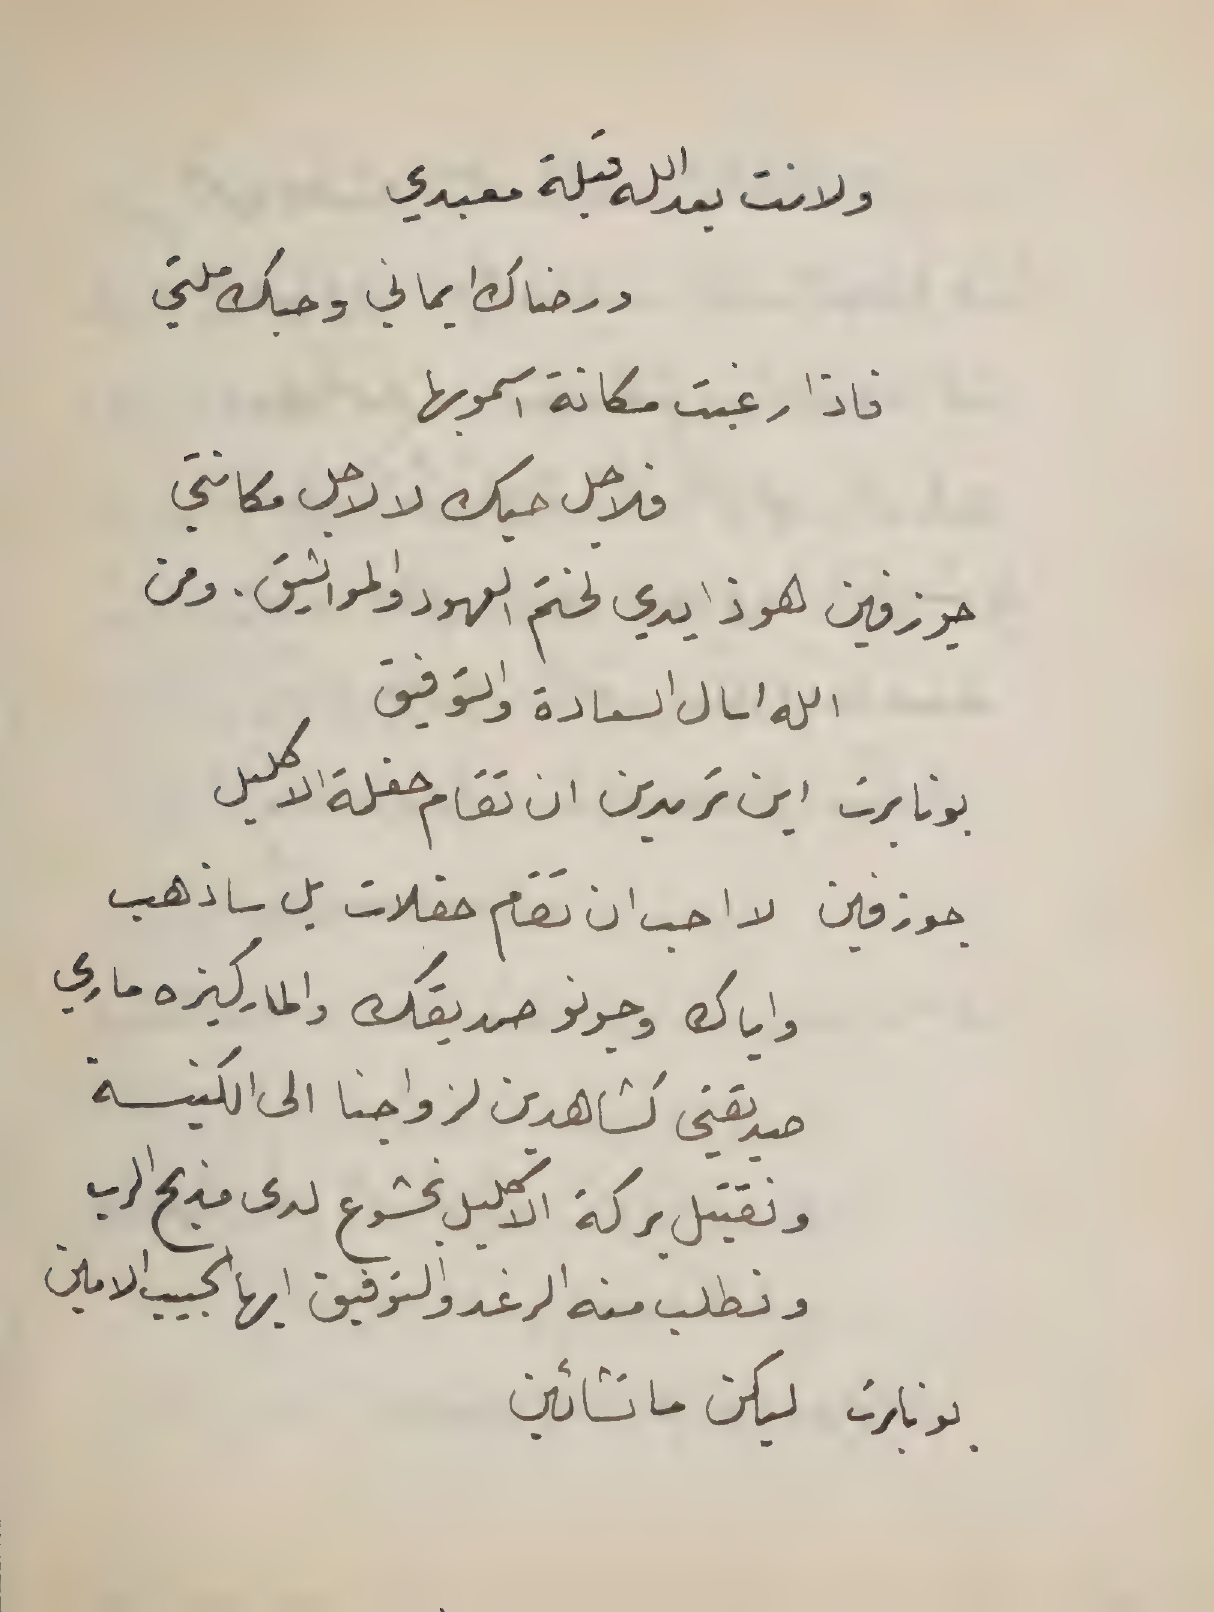 ولانت بعد الله قبلة معبدي
ورضاك ايماني وحبك ملتي
فاذا رغبت مكانة اسمو بها
فلاجل حبك لا لاجل مكانتي
جوزفين هوذا يدي لختم العهود والمواثيق. ومن
الله اسال السعادة والتوفيق
بونابرت اين تريدين ان تقام حفلة الاكليل
جوزفين لا احب ان تقام حفلات بل ساذهب
واياك وجونو صديقك والماركيزه ماري
صديقتي كشاهدين لزواجنا الى الكنيسة
ونقتبل بركة الاكليل بخشوع لدى مذبح الرب
ونطلب منه الرغد والتوفيق ايها الحبيب الامين
بونابرت ليكن ما تشائين